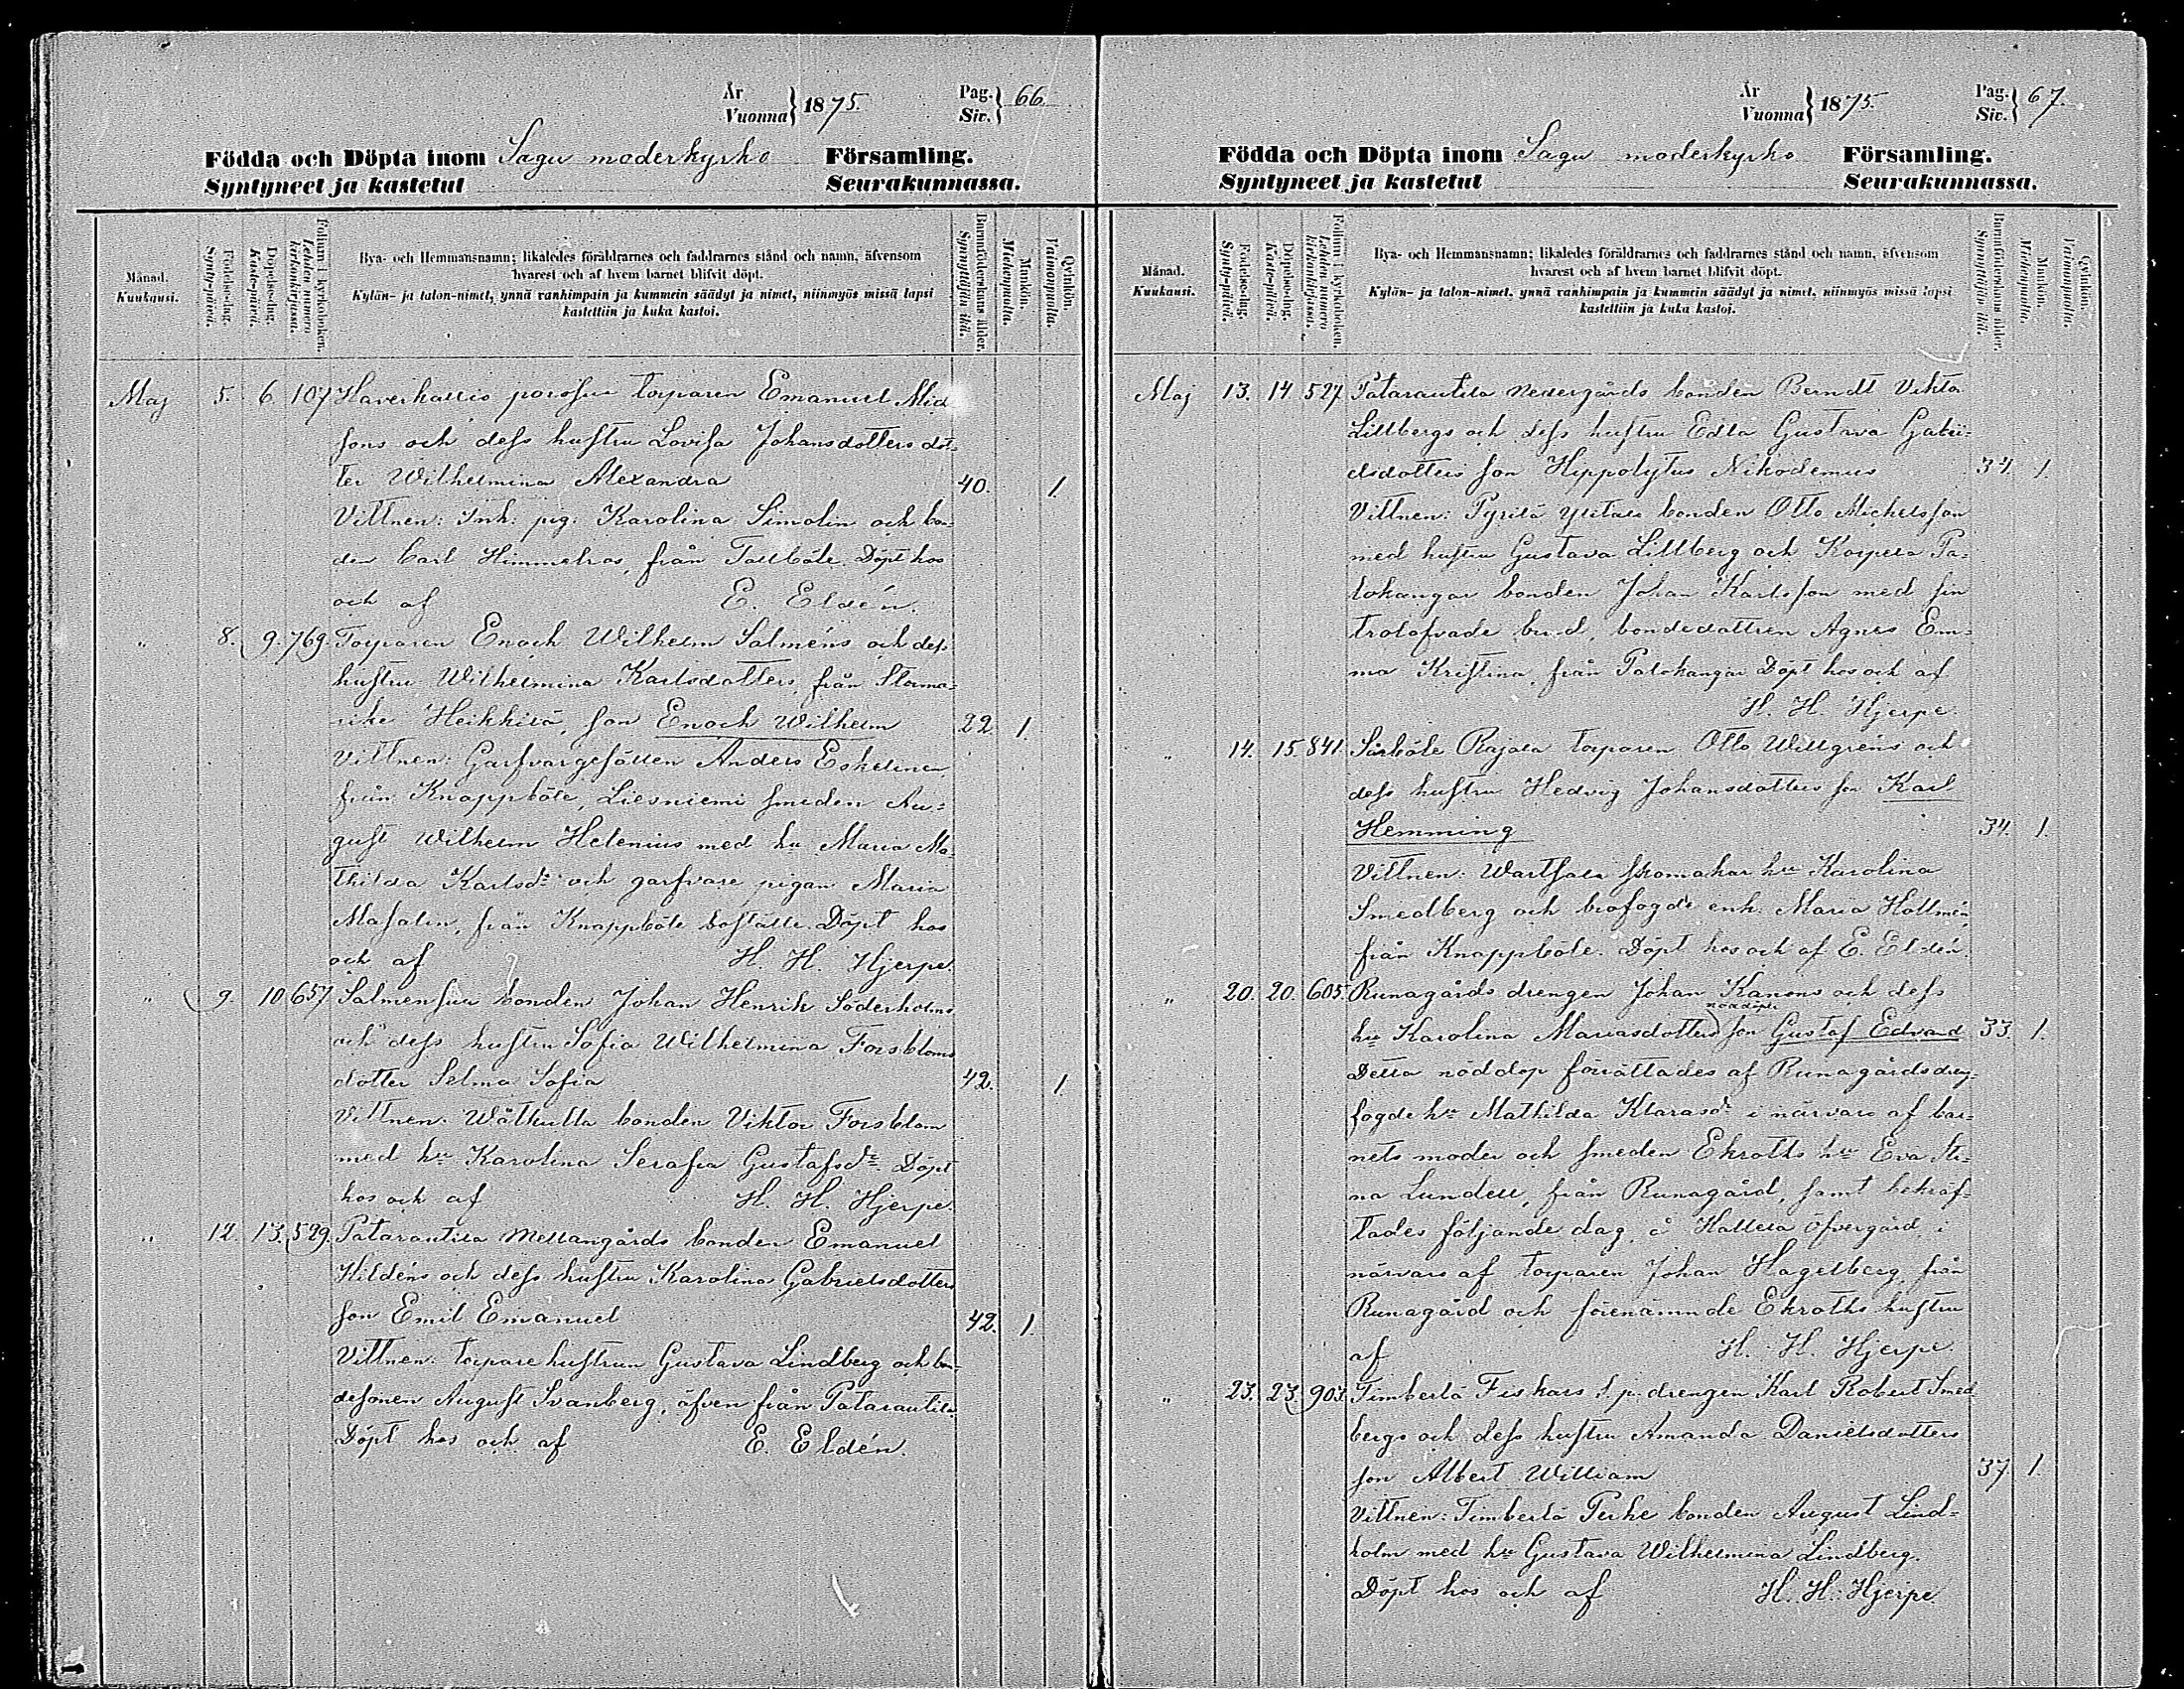 År
Vuonna } 1875.
Pag.
Siv. } 66
Födda och Döpta inom Sagu moderkyrko Församling.
Syntyneet ja kastetut Seurakunnassa.
Månad.
Kuukausi.
Födelse-dag.
Synty-päivä.
Döpelse-dag.
Kaste-päivä.
Folium i kyrkoboken.
Lehden numero kirkonkirjassa.
Bya- och Hemmansnamn; likaledes föräldrarnes och faddrarnes stånd och namn, äfvensom
hvarest och af hvem barnet blifvit döpt.
Kylän- ja talon-nimet, ynnä vanhimpain ja kummein säädyt ja nimet, niinmyös missä lapsi
kastettiin ja kuka kastoi.
Barnföderskans ålder.
Synnyttäjän ikä.
Mankön.
Miehenpuolta.
Qvinkön.
Vaimonpuolta.
Maj 5. 6. 107 torparen Emanuel Mid
sons och dess hustru Lovisa Johansdotters dot-
ter Wilhelmina Alexandra 40. 1.
Vittnen: Inh: pig: Karolina Simolin och bon-
den Carl Himmelroos, från Tallböle. Döpt hos
och af E. Eldén.
" 8. 9. 769. Torparen Enoch Wilhelm Salméns och dess
hustru Wilhelmina Karlsdotters, från Storma-
rike Heikkilä, son Enoch Wilhelm 22. 1.
Vittnen: Garfvargesällen Anders Eskelinen,
från Knappböle, Liesniemi smeden Au-
gust Wilhelm Helenius med hu Maria Ma-
thilda Karlsdr och garfvare pigan Maria
Masalin, från Knappböle boställe. Döpt hos
och af H. H. Hjerpe.
" 9. 10. 657 Salmensuu bonden Johan Henrik Söderholms
och dess hustru Sofia Wilhelmina Forsbloms
dotter Selma Sofia 42. 1.
Vittnen: Wåtkulla bonden Viktor Forsblom
med hu Karolina Serafia Gustafsdr. Döpt
hos och af H. H. Hjerpe.
" 12. 13. 529. Patarautila Mellangårds bonden Emanuel
Hildéns och dess hustru Karolina Gabrielsdotters
son Emil Emanuel 42. 1.
Vittnen: torpare hustrun Gustava Lindberg och bon-
desonen August Svanberg, äfven från Patarautila.
Döpt hos och af E. Eldén.
År
Vuonna } 1875.
Pag.
Siv. } 67.
Födda och Döpta inom Sagu moderkyrko Församling.
Syntyneet ja kastetut Seurakunnassa.
Månad.
Kuukausi.
Födelse-dag.
Synty-päivä.
Döpelse-dag.
Kaste-päivä.
Folium i kyrkoboken.
Lehden numero kirkonkirjassa.
Bya- och Hemmansnamn; likaledes föräldrarnes och faddrarnes stånd och namn, äfvensom
hvarest och af hvem barnet blifvit döpt.
Kylän- ja talon-nimet, ynnä vanhimpain ja kummein säädyt ja nimet, niinmyös missä lapsi
kastettiin ja kuka kastoi.
Barnföderskans ålder.
Synnyttäjän ikä.
Mankön.
Miehenpuolta.
Qvinkön.
Vaimonpuolta.
Maj 13. 14. 527. Patarautila Nedergårds bonden Berndt Viktor
Lillbergs och dess hustru Edla Gustava Gabri-
elsdotters son Hippolytus Nikodemus 34. 1.
Vittnen: Pyrilä Ylitalo bonden Otto Michelsson
med hustru Gustava Lillberg och Korpela Pa-
lokangar bonden Johan Karlsson med sin
trolofvade brud, bondedottren Agnes Em-
ma Kristina, från Palokangar. Döpt hos och af
H. H. Hjerpe.
" 14. 15. 841. Rajala torparen Otto Willgréns och
dess hustru Hedvig Johansdotters son Karl
Hemming 34. 1.
Vittnen: Wartsala skomakar hu Karolina
Smedberg och brofogde enk. Maria Hollmén,
från Knappböle. Döpt hos och af E. Eldén.
" 20. 20. 605. Runagårds drengen Johan Kanons och dess
nöddöpte
hu Karolina Mariasdotters son Gustaf Edvard 33. 1.
Detta nöddop förättades af Runagårds dreng-
fogde hu Mathilda Klarasdr i närvaro af bar-
nets moder och smeden Ekroths hu Eva Sti-
na Lundell, från Runagård, samt bekräf-
tades följande dag å Kallela öfvergård i
närvaro af torparen Johan Hagelberg från
Runagård och förenämnde Ekroths hustru
af H. H. Hjerpe.
" 23. 23. 903. Timberlä Fiskars s.p. drengen Karl Robert Smed
bergs och dess hustru Amanda Danielsdotters
son Albert William 37. 1.
Vittnen: Timberlä Perhe bonden August Lind-
holm med hu Gustava Wilhelmina Lindberg.
Döpt hos och af H. H. Hjerpe.